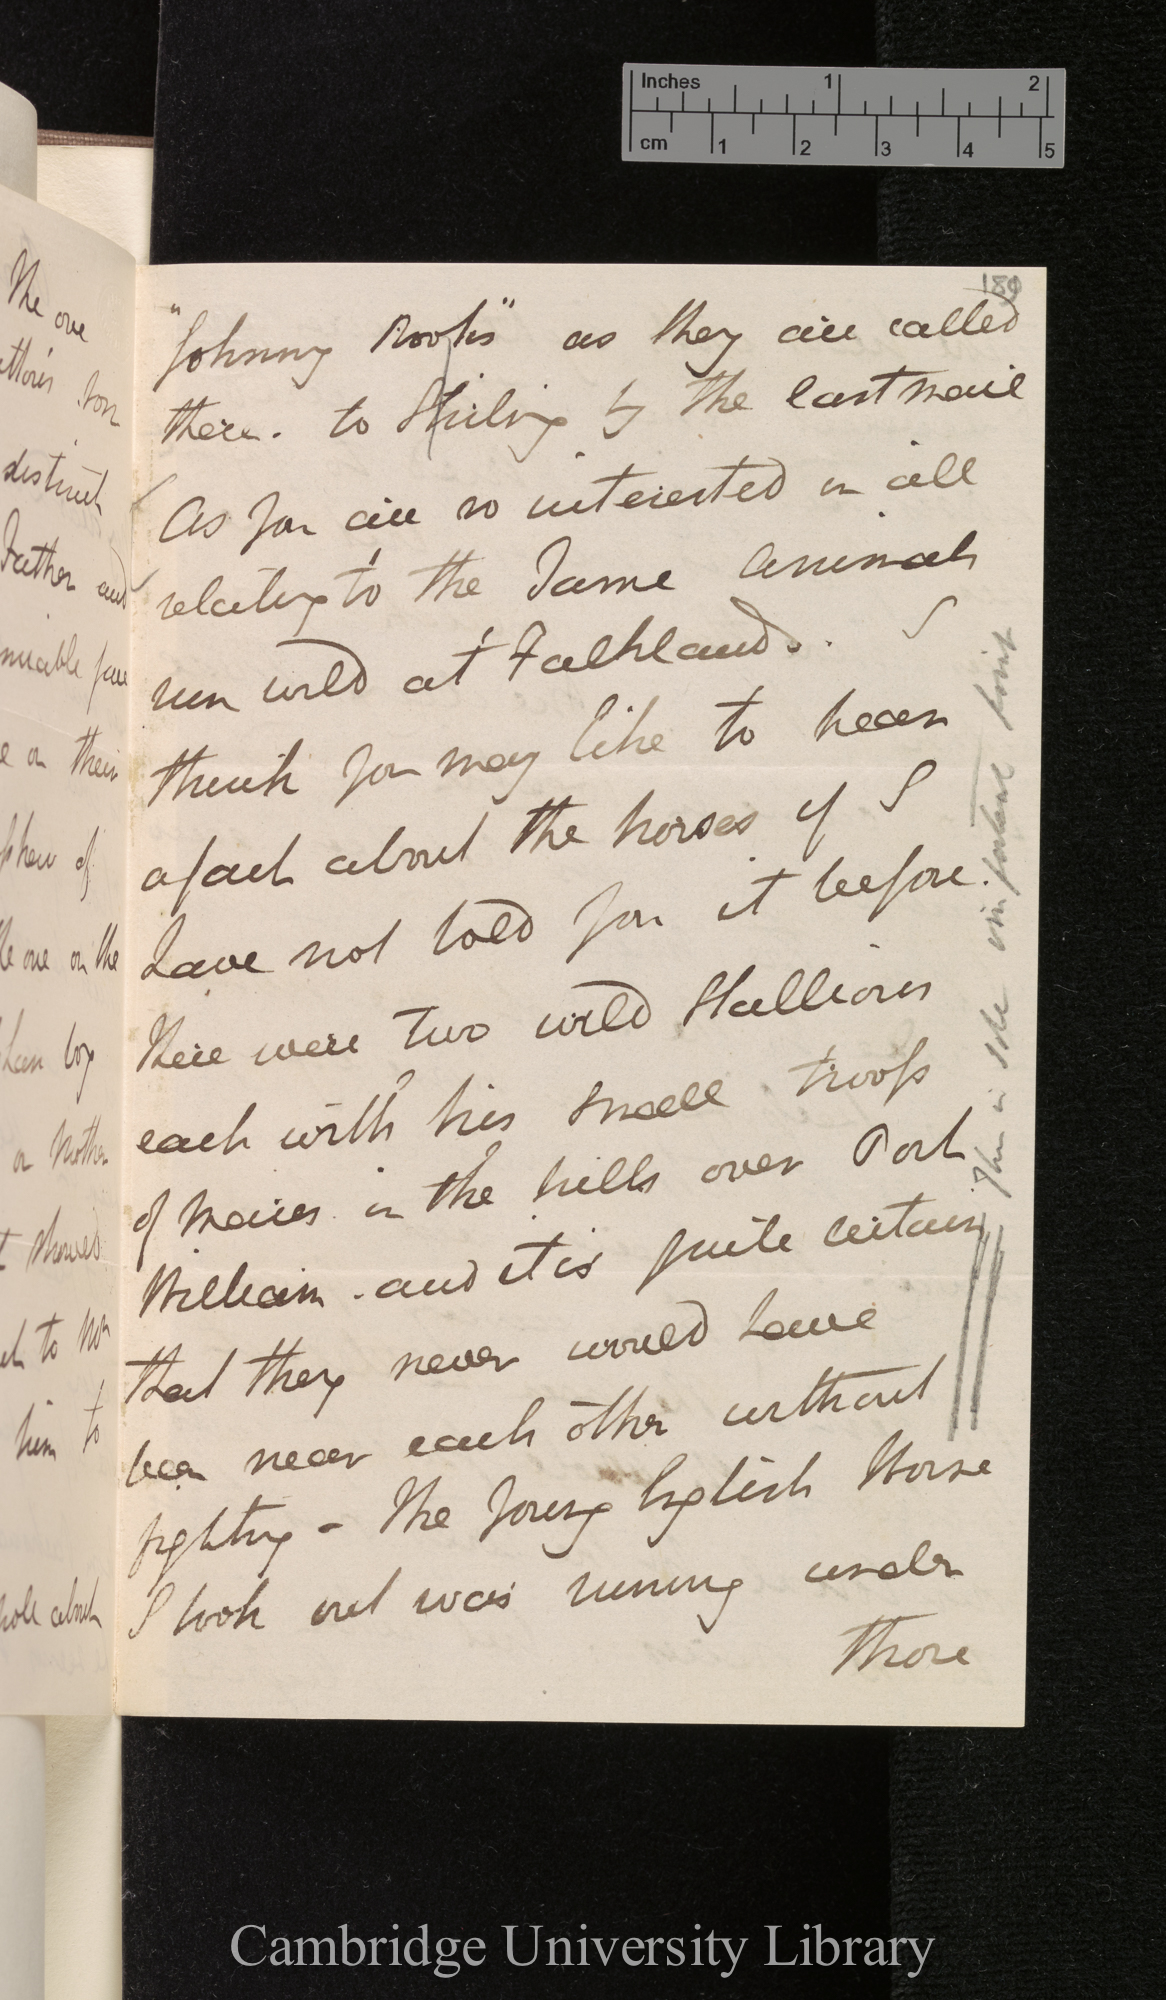 Inches 1 2
cm 1 2 3 4 5
180
"Johnny Rooks" as they are called
there. to Stirling by the last mail
As you are so interested in all
relating to the Tame animals
run wild at Falklands. I
think you may like to hear
a fact about the horses if I
have not told you it before.
There were two wild Stallions
each with his small troop
of Mares in the hills over Port
William. and it is quite certain
that they never would have
been near each other without
fighting - The young English Horse
I took out was running under
those
This is sole important point
The one
distinct
Father and
amiable
e on their
of
one on the
boy
or Mother
showed
to
him to
about
Cambridge University Library